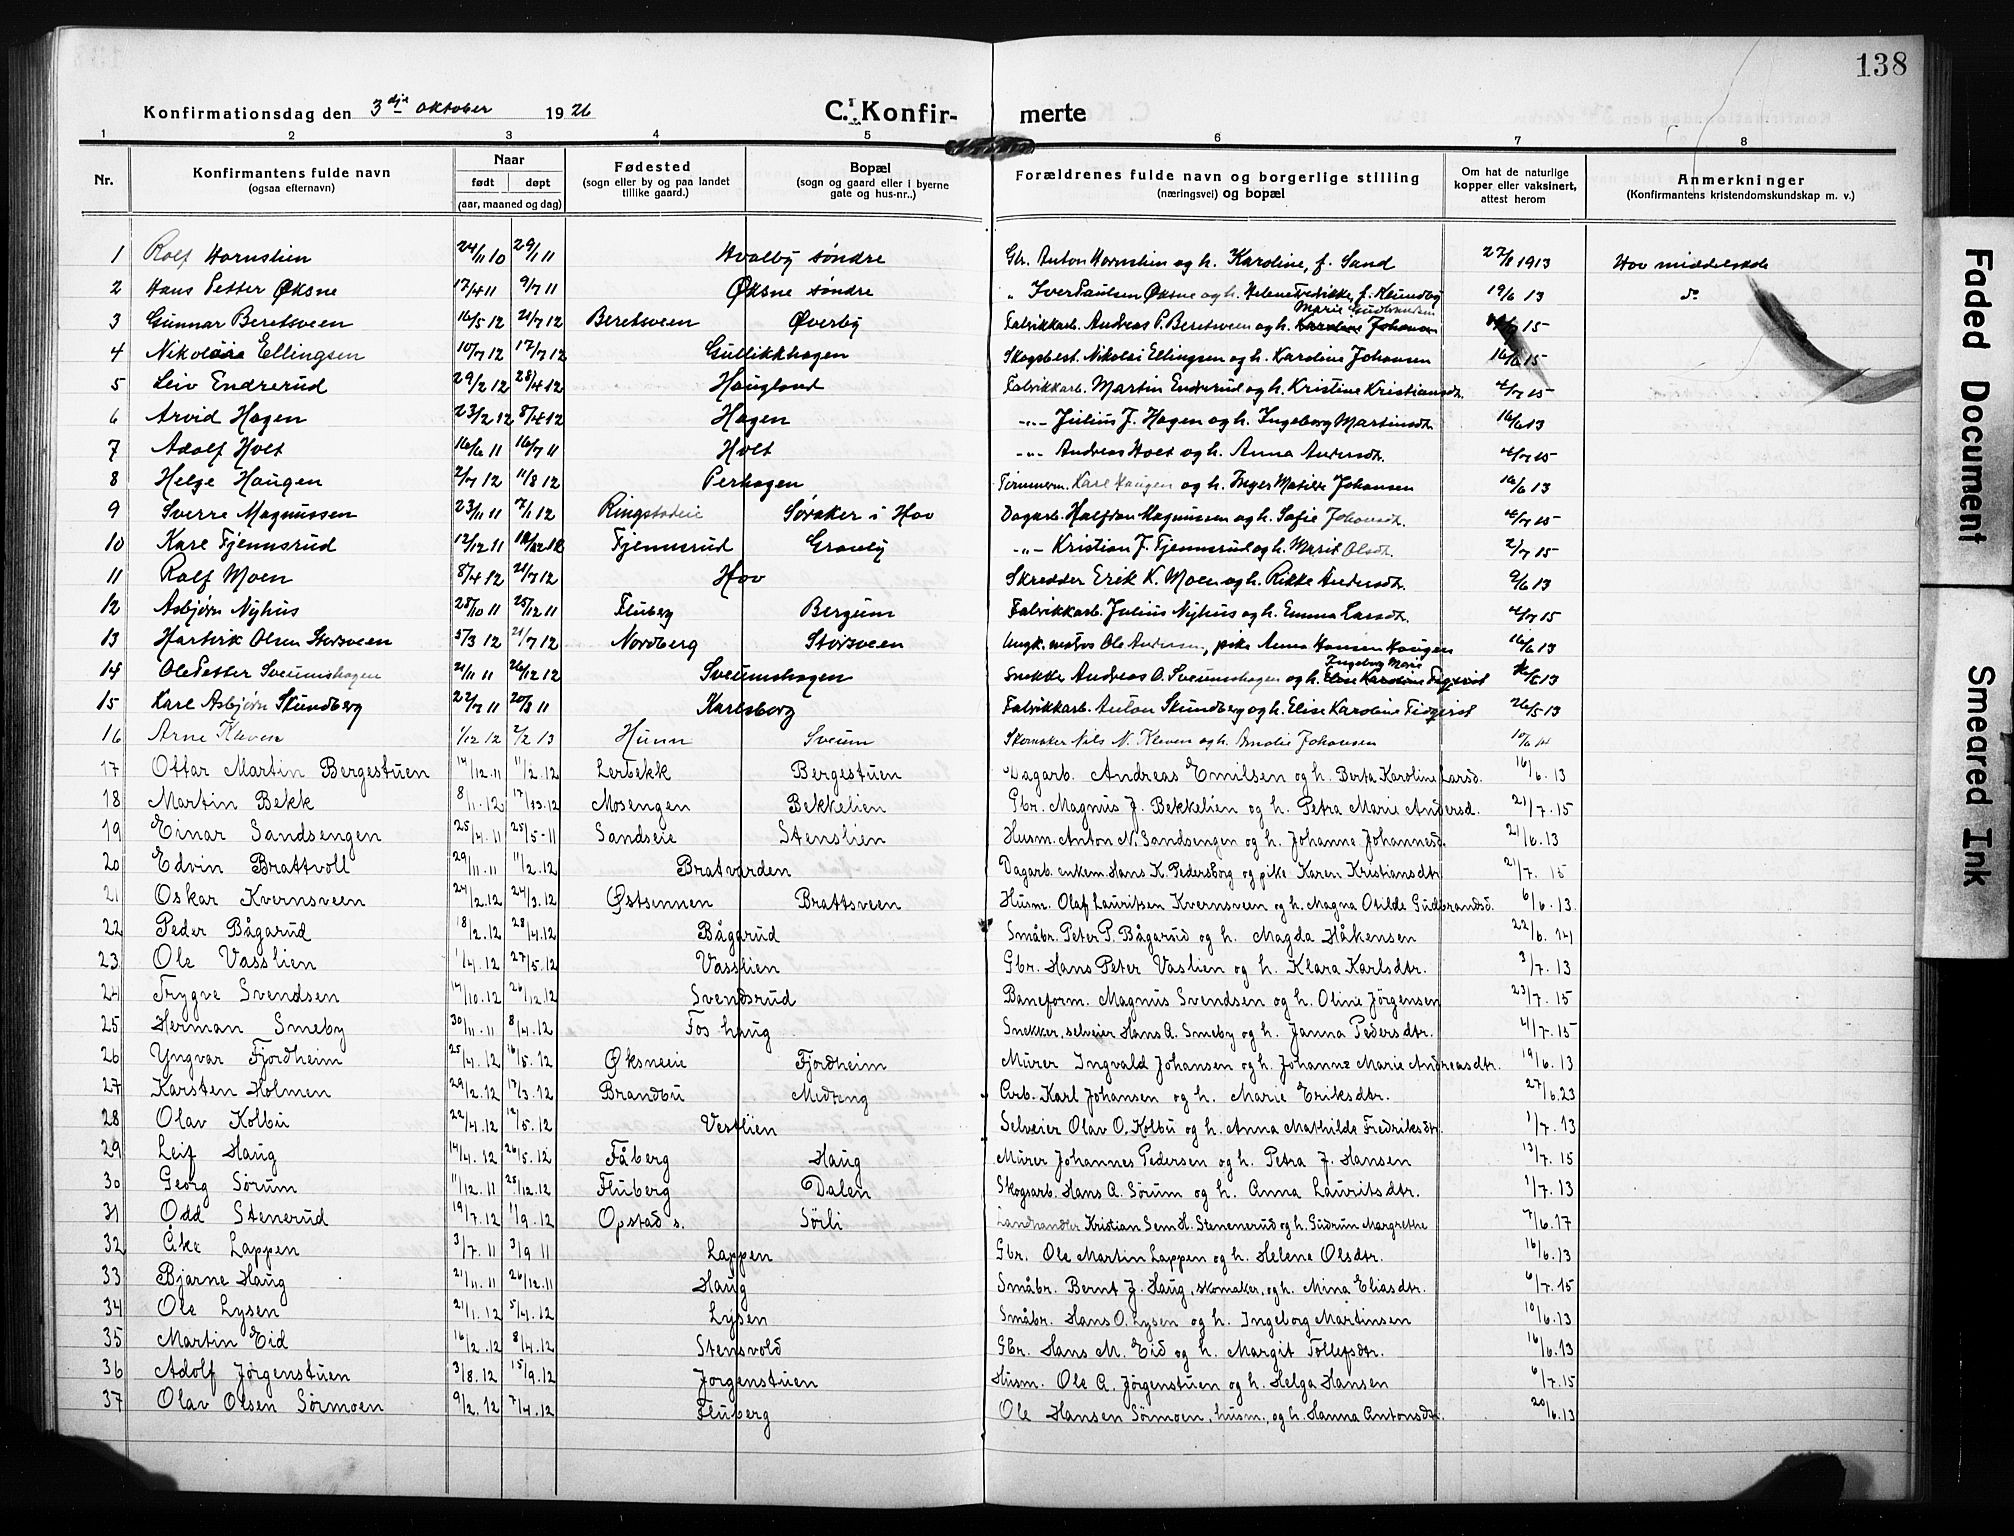 138
Konfirmationsdag den 3dje oktober 1926 C. Konfir- merte
1 2 3 4 5 6 7 8
Nr. Konfirmantens fulde navn (ogsaa efternavn) Naar født døpt (aar, maaned og dag) Fødested (sogn eller by og paa landet tillike gaard.) Bopæl (sogn og gaard eller i byerne gate og hus-nr..) Forældrenes fulde navn og borgerlige stilling (næringsvei) og bopæl Om hat de naturlige kopper eller vaksinert, attest herom Anmerkninger (Konfirmantens kristendomskundskap m. v.)
1 Rolf Hornslien 24/11 10 29/1 11 Hvalby søndre Gbr. Anton Hornslien og h. Karoline, f. Sand 27/6 1913 Hov middelskole
2 Hans Petter Øksne 17/4 11 9/7 11 Øksne søndre " Iver Paulsen Øksne og h. Helene Fredrikke, f. Skundby 19/6 13 do
3 Gunnar Beretsveen 16/5 12 21/7 12 Beretsveen Øverby Fabrikkarb. Andreas P. Beretsveen og h. Marie Gudbrandsen 15
4 Nikolai Ellingsen 10/7 12 17/7 12 Gullikkhagen Skogsbest. Nikolai Ellingsen og h. Karoline Johansen 16/6 15
5 Leiv Endrerud 29/2 12 28/4 12 Haugland Fabrikkarb. Martin Endrerud og h. Kristine Kristiansdt. 2/7 15
6 Arvid Hagen 23/2 12 8/4 12 Hagen -"- Julius J. Hagen og h. Ingeborg Martinsdt. 16/6 13
7 Adolf Holt 16/6 11 16/7 11 Holt -"- Andreas Holt og h. Anna Andersdt. 2/7 15
8 Helge Haugen 2/7 12 11/8 12 Perhagen Tømmerm. Karl Haugen og h. Inger Matilde Johansen 16/6 13
9 Sverre Magnussen 23/11 11 7/1 12 Ringstadeie Søraker i Hov Dagarb. Halfdan Magnussen og h. Sofie Johansdt. 2/7 15
10 Kare Fjennsrud 12/12 11 Fjennsrud Graaby -"- Kristian J. Fjennsrud og h. Marit Olsdt. 2/7 15
11 Rolf Moen 8/4 12 21/7 12 Hov Skredder Erik K. Moen og h. Rikke Andersdt. 9/6 13
12 Asbjørn Nyhus 28/10 11 25/12 11 Fluberg Bergum Fabrikkarb. Julius Nyhus og h. Emma Larsdt. 2/7 15
13 Hartvik Olsen Storsveen 5/3 12 21/7 12 Nordberg Storsveen Ungk. matros Ole Andersen, pike Anna Hansen Haugen 16/6 13
14 Ole Petter Sveumshagen 21/11 11 26/12 12 Sveumshagen Snekker Andreas O. Sveumshagen og h. Ingeborg Marie 13
15 Karl Asbjørn Skundberg 22/7 11 20/8 11 Karlsborg Fabrikkarb. Anton Skundberg og h. Elise Karoline Fidqvist 26/5 13
16 Arne Kleven 1/12 12 2/2 13 Hunn Sveum Skomaker Nils N. Kleven og h. Amalie Johansen 10/6 14
17 Ottar Martin Bergestuen 14/12.11 11/2.12 Lerbekk Bergestuen Dagarb. Andreas Emilsen og h. Berta Karoline Larsd. 16/6.13
18 Martin Bekk 8/1.12 17/3.12 Mosengen Bekkelien Gbr. Magnus J. Bekkelien og h. Petra Marie Andersd. 21/7.15
19 Einar Sandsengen 25/4.11 25/5-11 Sandseie Stenslien Husm. Anton N. Sandsengen og h. Johanne Johannesd. 21/6.13
20 Edvin Brattvoll 29/11.11 11/2.12 Bratvarden Dagarb. enkem. Hans K. Pedersborg og pike Karen Kristiansdtr 21/7. 15
21 Oskar Kvernsveen 24/2.12 24/3.12 Østsennen Brattsveen Husm. Olaf Lauritsen Kvernsveen og h. Magna Otilde Gudbrandsd. 6/6.13.
22 Peder Bågarud 18/2.12 28/4.12 Bågarud Småbr. Peter P. Bågarud og h. Magda Håkensen 22/6.14
23. Ole Vasslien 1/4.12 27/5.12 Vasslien Gbr. Hans Peter Vaslien og h. Klara Karlsdtr. 3/7.13
24 Trygve Svendsen 14/10.12 26/12.12 Svendsrud Baneform. Magnus Svendsen og h. Oline Jörgensen 23/7.15
25 Herman Smeby 30/11.11 8/4.12 Foshaug Snekker, selveier Hans A. Smeby og h. Janna Pedersdtr. 4/7.15
26 Yngvar Fjordheim 25/4.12 16/5.12 Øksneeie Fjordheim Mürer Ingvald Johansen og h. Johanne Marie Andreasdtr. 19/6.13
27 Karsten Holmen 29/2.12 17/3.12 Brandbu Midteng Arb. Karl Johansen og h. Marie Eriksdtr. 27/6.23
28 Olav Kolbu 22/4.12 12/5.12 Vestlien Selveier Olav O. Kolbu og h. Anna Mathilde Fredriksdtr. 1/7.13
29 Leif Haug 14/4.12 26/5.12 Fåberg Haug Mürer Johannes Pedersen og h. Petra J. Hansen 13/7.15
30 Georg Sörum 11/12.11 25/12.12 Fluberg Dalen Skogsarb. Hans A. Sörum og h. Anna Lauritsdtr. 1/7.13
31 Odd Stenerud 19/7.12 1/9.12 Opstad s. Sörli Landhandler Kristian Sem H. Stenenerud og h. Gudrun Margrethe 7/6.17
32 Åke Lappen 3/7.11 3/9.11 Lappen Gbr. Ole Martin Lappen og h. Helene Olsdtr. 16/6.13
33 Bjarne Haug 21/11.11 26/12.11 Haug Småbr. Bernt J. Haug, skomaker, og h. Mina Eliasdtr. 6/7.15
34 Ole Lysen 21/1.12 5/4.12 Lysen Småbr. Hans O. Lysen og h. Ingeborg Martinsen 10/6.13
35 Martin Eid 16/2.12 8/4.12 Stensvold Gbr. Hans M. Eid og h. Margit Tollefsdtr. 16/6.13
36 Adolf Jörgenstuen 3/8.12 15/9.12 Jorgenstuen Husm. Ole A. Jörgenstuen og h. Helga Hansen 6/7.15
37 Olav Olsen Sörmoen 9/2.12 7/4.12 Fluberg Ole Hansen Sörmoen, husm., og h. Hanna Antonsdtr. 20/6.13
Faded Document
Smeared Ink